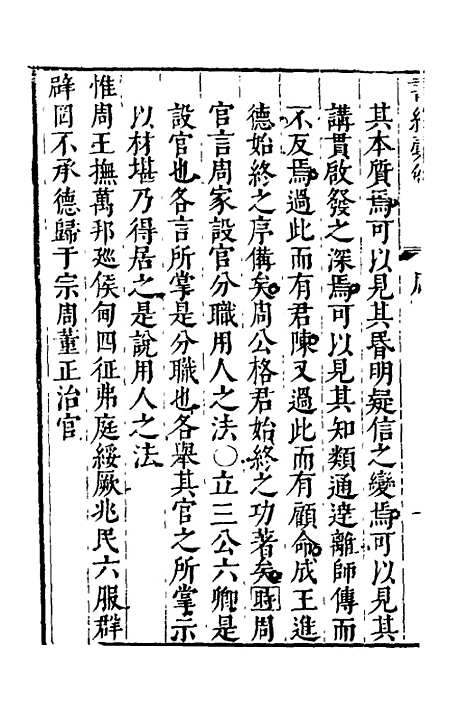 其本質焉可以見其昏明疑信之變焉可以見其
講貫啟發之深焉可以見其知類通達離師傅而
不反焉過此而有君陳又過此而有顧命成王進
德始終之序備矣周公格君始終之功著矣
周
官言周家設官分職用人之法○立三公六卿是
設官也各言所掌是分職也各舉其官之所掌示
以材堪乃得居之是說用人之法
惟周王撫萬邦廵侯甸四征弗庭綏厥兆民六服群
辟罔不承德歸于宗周董正治官